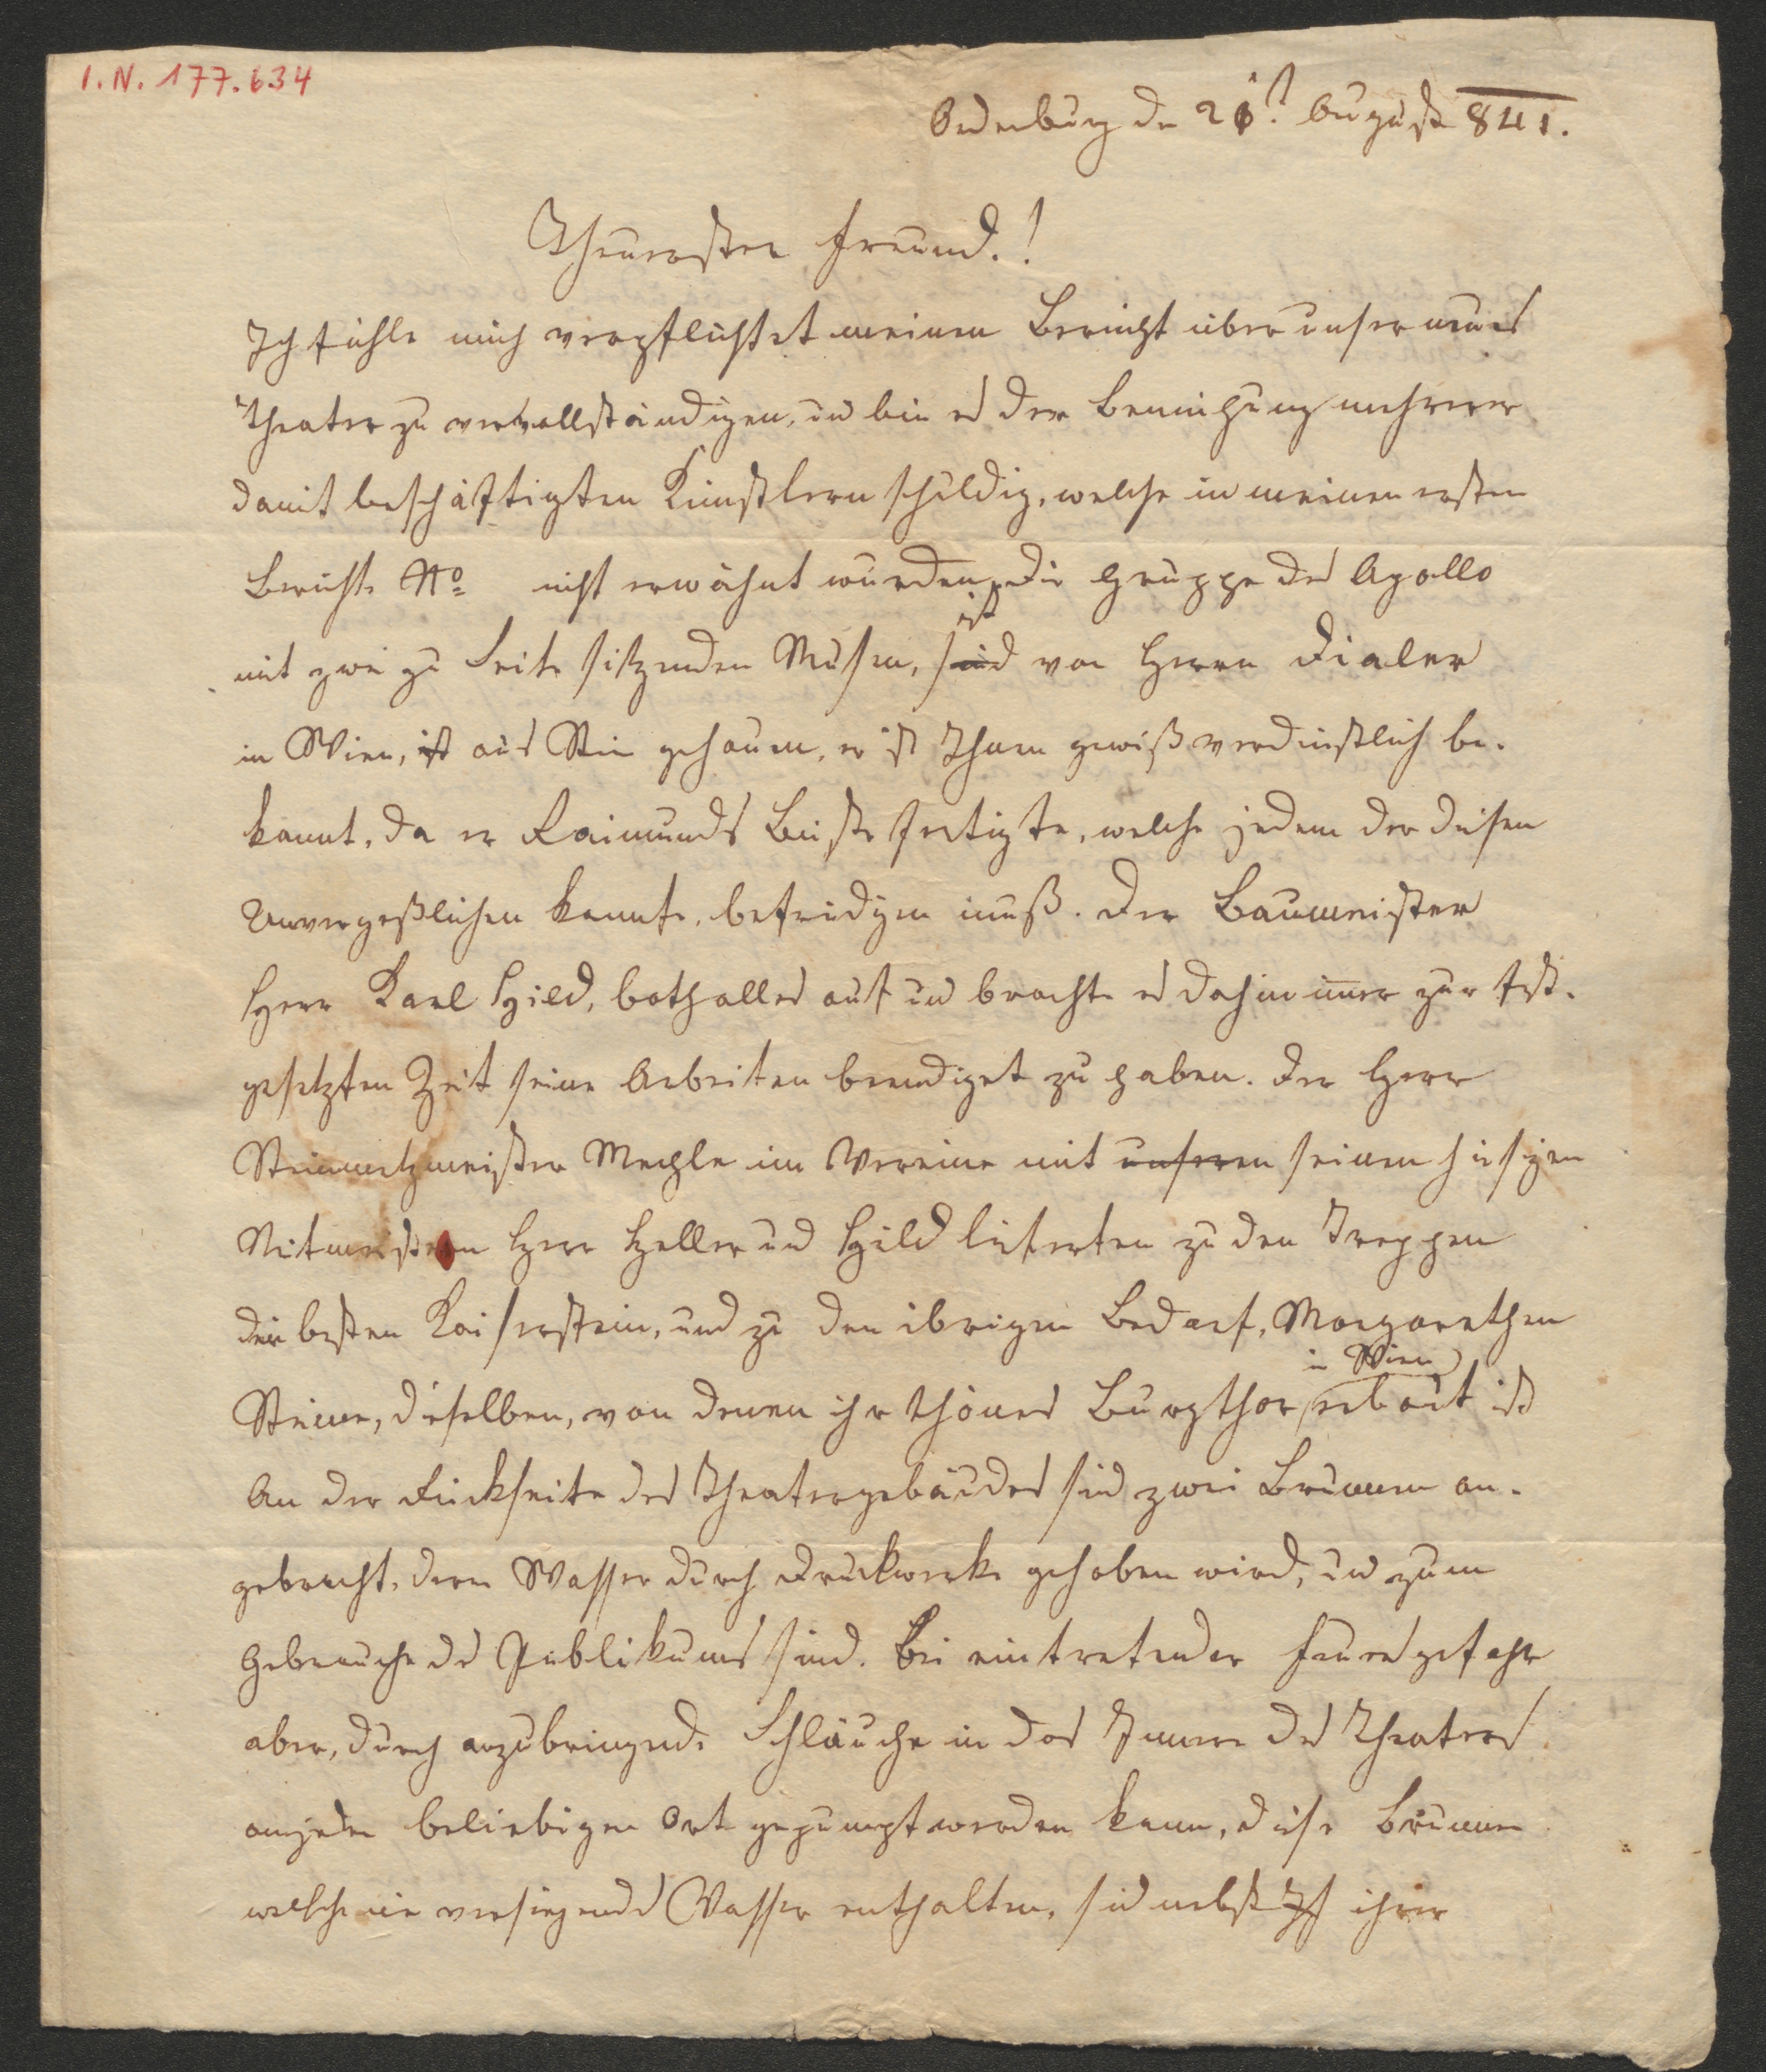 I. N. 177.634
Oedenburg den 21t August 841.
Theuerster Freund.!
Ich fühle mich verpflichtet meinen Bericht über unser neues
Theater zu vervollständigen, und bin es der Bemühung mehrerer
damit beschäftigten Künstlern schuldig, welche in meinen ersten
Berichte No nicht erwähnt wurden, Die Gruppe des Apollo
mit zwei zu Seite sitzenden Musen, sind ist von Herrn Dialer
in Wien, ist aus Stein gehauen, er ist Ihnen gewiß verdienstlich be-
kannt, da er Raimunds Büste fertigte, welche jedem der diesen
Unvergeßlichen kannte, befriedigen muß. Der Baumeister
Herr Karl Hild, both alles auf und brachte es dahin immer zur fest-
gesetzten Zeit seine Arbeiten beendiget zu haben. Der Herr
Steinmetzmeister Mechle im Vereine mit unseren seinen hiesigen
Mitmeistern Herr Heller und Hild lieferten zu den Treppen
die besten Kaiserstein, und zu den ibrigen Bedarf, Margarethen
Steine, dieselben, von denen ihr schönes Burgthor in Wien erbaut ist
An der Rückseite des Theatergebäudes sind zwei Brunnen an-
gebracht, deren Wasser durch Druckwerke gehoben wird, und zum
Gebrauche des Publikums sind. Bei eintretender Feuersgefahr
aber, durch anzubringende Schläuche in das Innere des Theaters
an jeden beliebigen Ort gepumpt werden kann, diese Brunnen
welche nie versiegendes Wasser enthalten, sind nebst ihrer